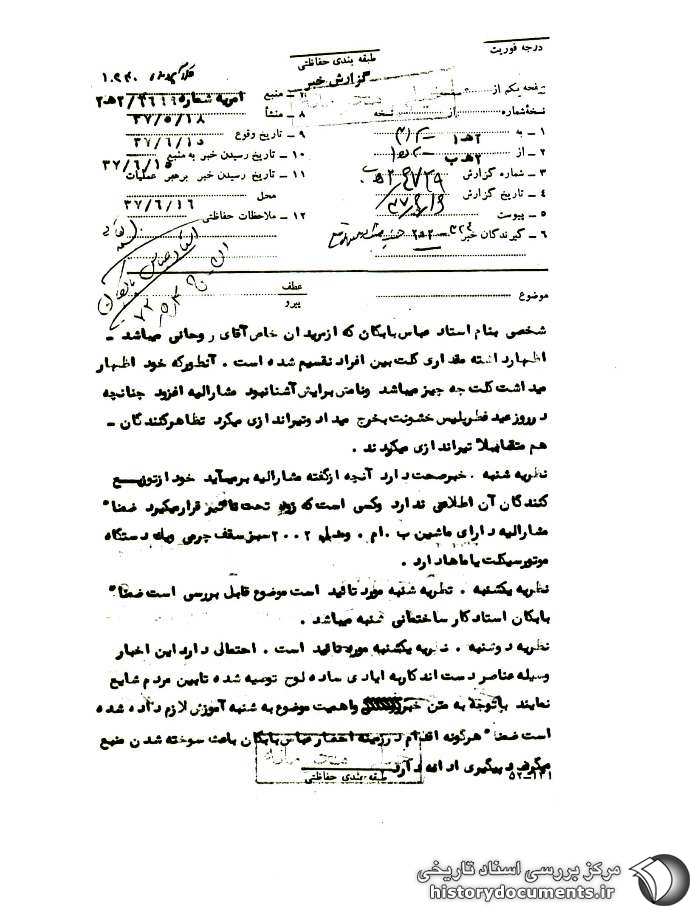 درجه فوریت
طبقه بندی حفاظتی
گزارش خبر
صفحه یکم از صفحه
نسخه‌شماره از نسخه
۱ ــ به ۲هـ۱
۲ ــ از ۲هـ ب
۳ ــ شماره گزارش
۴ ــ تاریخ گزارش
۵ ــ پیوست
۶ ــ گیرندگان خبر
منبع
۸ ــ منشأ ۳۷/۵/۱۸
۹ ــ تاریخ وقوع ۳۷/۶/۱۵
۱۰ ــ تاریخ رسیدن خبر به منبع ۳۷/۶/۱۵
۱۱ ــ تاریخ رسیدن خبر برهبر عملیات
محل ۳۷/۶/۱۶
۱۲ ــ ملاحظات حفاظتی
موضوع
عطف
پیرو
شخصی بنام استاد عباس بابکان که ازمریدان خاص آقای روحانی میباشد ــ
اظهارداشته مقداری کلت بین افراد تقسیم شده است . آنطورکه خود اظهار
میداشت کلت چه چیز میباشد ونامش برایش آشنانبود مشارالیه افزود چنانچه
درروز عید فطرپلیس خشونت بخرج میداد وتیراندازی میکرد تظاهرکنندگان ــ
هم متقابلاً تیراندازی میکردند .
نظریه شنبه . خبرصحت دارد آنچه ازگفته مشارالیه برمیآید خود ازتوزیع
کنندگان آن اطلاعی ندارد وکسی است که زود تحت تاثیر قرارمیگیرد ضمناً
مشارالیه دارای ماشین ب . ام . و مدل ۲۰۰۲ سبز سقف چرمی ویک دستگاه
موتورسیکلت یاماهادارد .
نظریه یکشنبه . نظریه شنبه مورد تائید است موضوع قابل بررسی است ضمناً
بابکان استادکار ساختمانی شنبه میباشد .
نظریه دوشنبه . نظریه یکشنبه مورد تائید است . احتمالی دارداین اخبار
وسیله عناصر دست اندکاربه ایادی ساده لوح توصیه شده تابین مردم شایع
نمایند باتوجه به متن خبر واهمیت موضوع به شنبه آموزش لازم داده شده
است ضمناً هرگونه اقدام درزمینه احضار عباس بابکان باعث سوخته شدن منبع
میگردد پیگیری ادامه دارد
طبقه بندی حفاظتی
۵۲ــ۱۴۱
مرکز بررسی اسناد تاریخی
historydocuments.ir